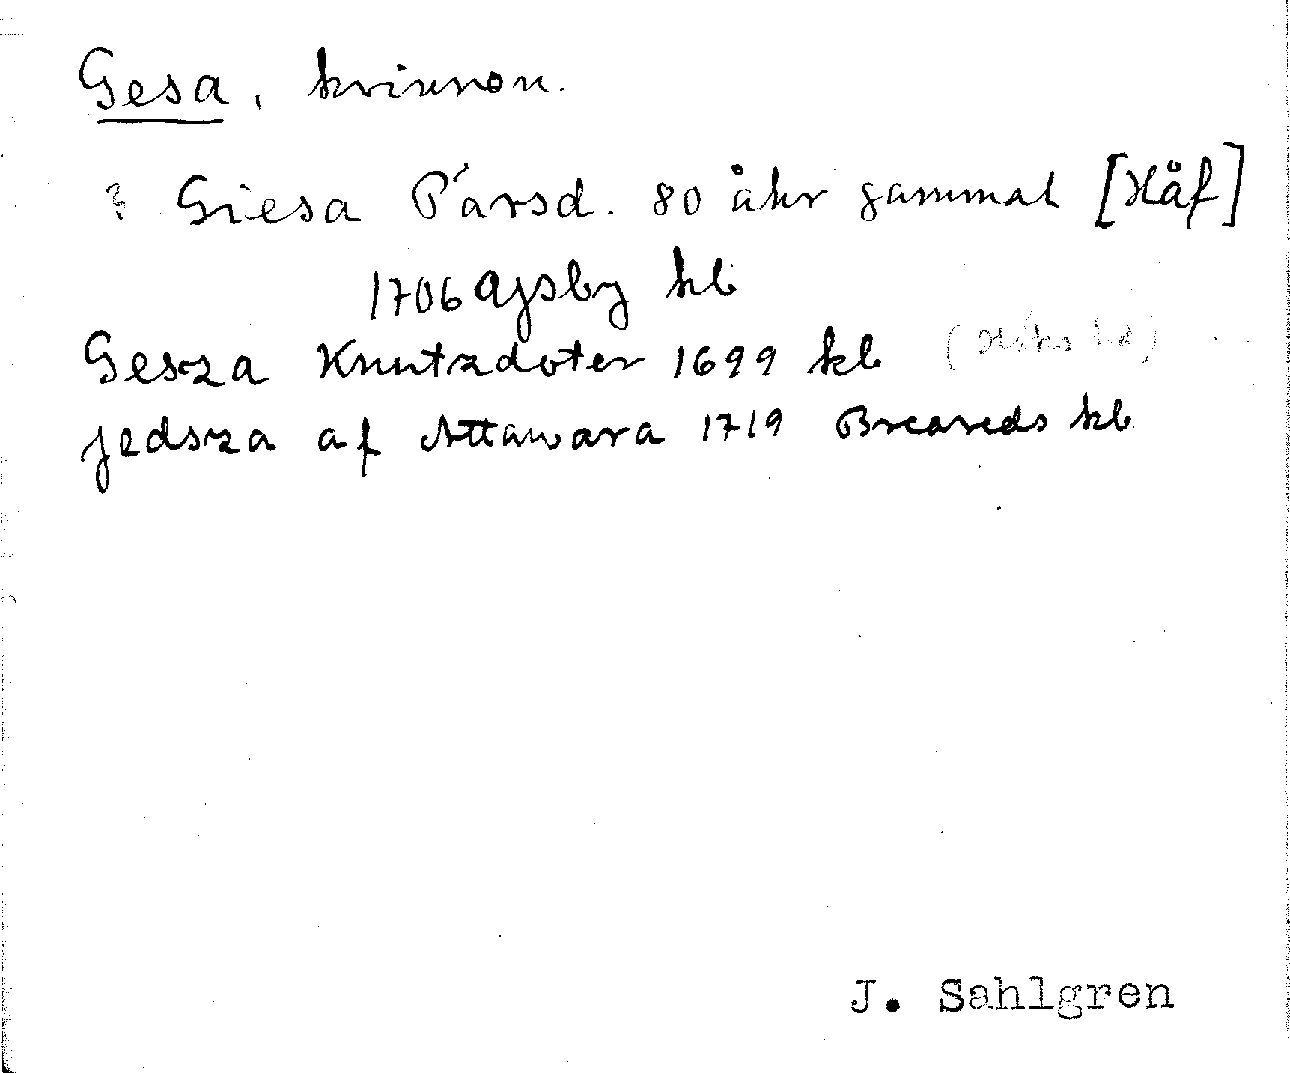 Gesa, kvinnon.
? Giesa Pärsd. 80 åhr gammal [Håf]
1706 Ajsby kb
Gesza Knutzdoter 1699 kb (Höks hd)
jedsza af Attawara 1719 Breareds kb
J. Sahlgren